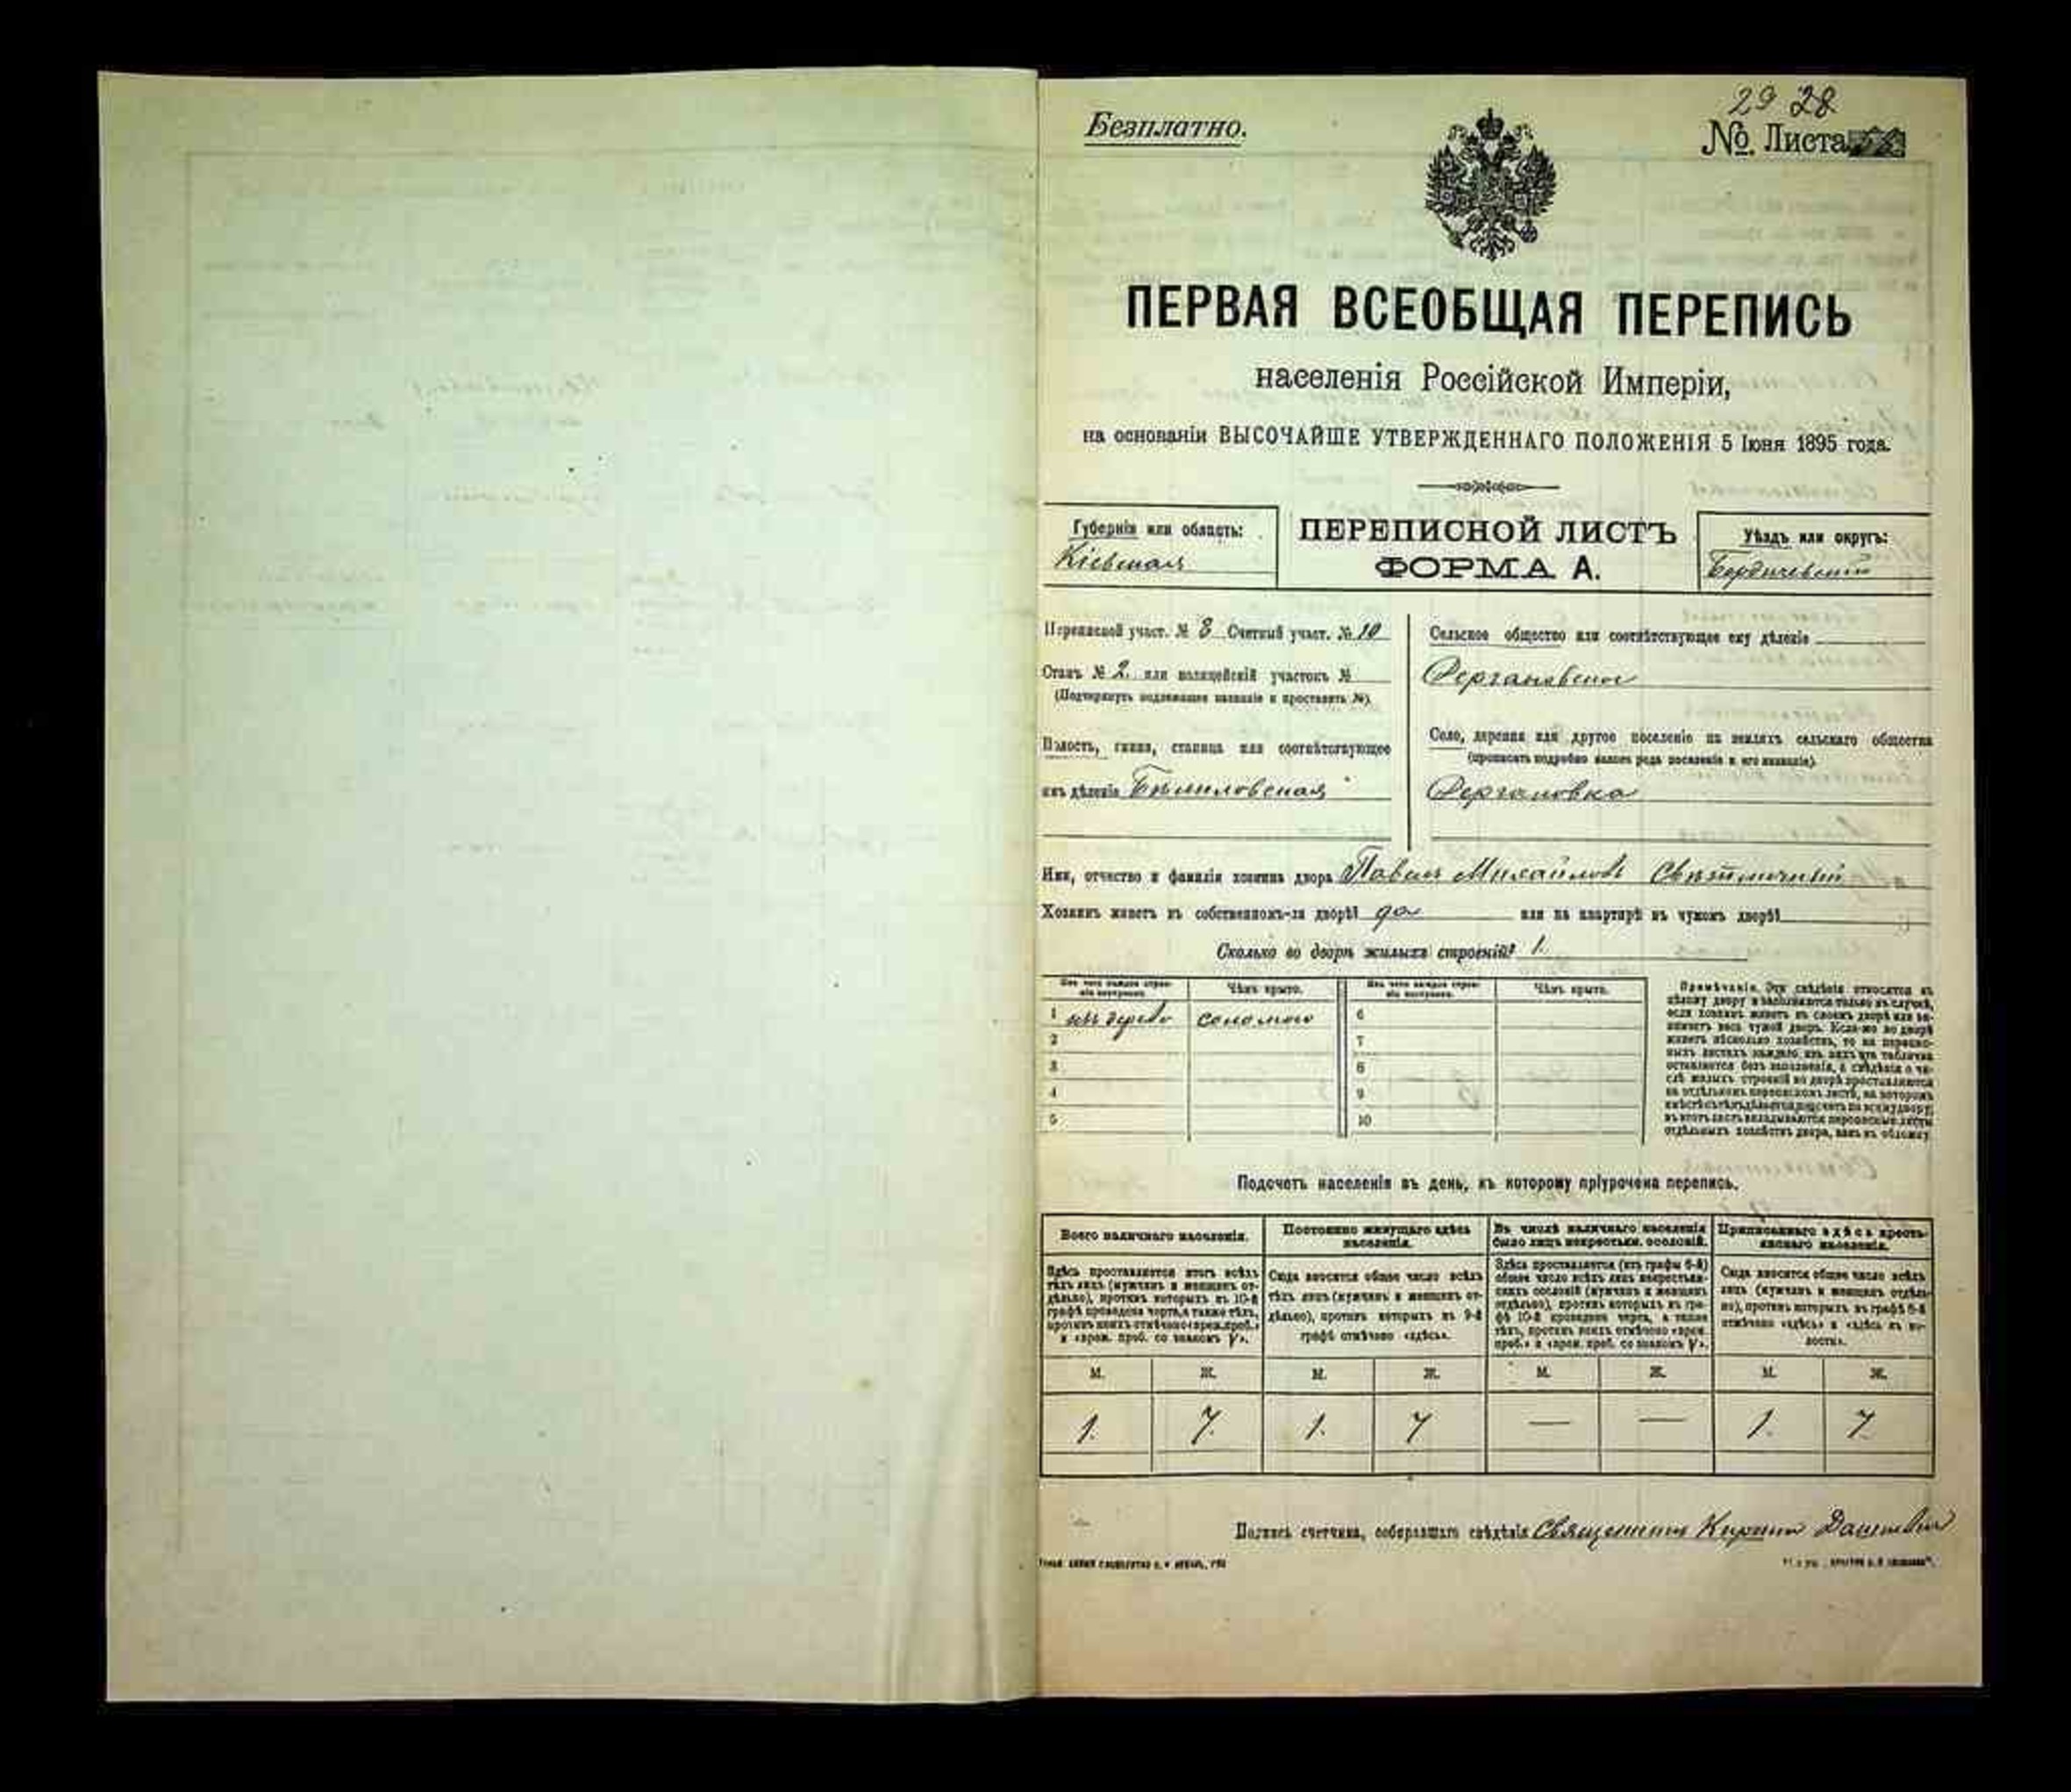 29 28
Безплатно.
№. Листа
ПЕРВАЯ ВСЕОБЩАЯ ПЕРЕПИСЬ
населенія Россійской Имперіи,
на основаніи ВЫСОЧАЙШЕ УТВЕРЖДЕННАГО ПОЛОЖЕНІЯ 5 Іюня 1895 года.
Губернія или область:
Кіевская
ПЕРЕПИСНОЙ ЛИСТЪ
ФОРМА А.
Уѣздъ или округъ:
Бердичевскій
Переписной участ. № 3 Счетный участ. № 10
Станъ № 2. или полицейскій участокъ №
(Подчеркнуть надлежащее названіе и проставить №).
Волость, гмина, станица или соотвѣтствующее
имъ дѣленіе
Сельское общество или соотвѣтствующее ему дѣленіе
Село, деревня или другое поселеніе на земляхъ сельскаго общества
(прописать подробно какого рода поселеніе и его названіе).
Имя, отчество и фамилія хозяина двора Павелъ Михайловъ
Хозяинъ живетъ въ собственномъ-ли дворѣ? да или на квартирѣ въ чужомъ дворѣ?
Сколько во дворѣ жилыхъ строеній? 1.
Изъ чего каждое строеніе построено. Чѣмъ крыто. Изъ чего каждое строеніе построено. Чѣмъ крыто.
1 соломою 6
2 7
3 8
4 9
5 10
Примѣчаніе. Эти свѣдѣнія относятся къ
цѣлому двору и заполняются только въ случаѣ,
если хозяинъ живетъ въ своемъ дворѣ или за-
нимаетъ весь чужой дворъ. Если-же во дворѣ
живетъ нѣсколько хозяйствъ, то на перепис-
ныхъ листахъ каждаго изъ нихъ эта табличка
оставляется безъ заполненія, а свѣдѣнія о чи-
слѣ жилыхъ строеній во дворѣ проставляются
на отдѣльномъ переписномъ листѣ, на которомъ
въ этотъ листъ вкладываются переписные листы
отдѣльныхъ хозяйствъ двора, какъ въ обложку.
Подсчетъ населенія въ день, къ которому пріурочена перепись.
Всего наличнаго населенія.
Постоянно живущаго здѣсь населенія.
Въ числѣ наличнаго населенія было лицъ некрестьян. сословій.
Приписаннаго здѣсь крестьянскаго населенія.
Здѣсь проставляется итогъ всѣхъ
тѣхъ лицъ (мужчинъ и женщинъ от-
дѣльно), противъ которыхъ въ 10-й
графѣ проведена черта, а также тѣхъ,
противъ коихъ отмѣчено «врем. проб.»
и «врем. проб. со знакомъ V».
Сюда вносится общее число всѣхъ
тѣхъ лицъ (мужчинъ и женщинъ от-
дѣльно), противъ которыхъ въ 9-й
графѣ отмѣчено «здѣсь».
Здѣсь проставляется (изъ графы 6-й)
общее число всѣхъ лицъ некрестьян-
скихъ сословій (мужчинъ и женщинъ
отдѣльно), противъ которыхъ въ гра-
фѣ 10-й проведена черта, а также
тѣхъ, противъ коихъ отмѣчено «врем.
проб.» и «врем. проб. со знакомъ V».
Сюда вносится общее число всѣхъ
лицъ (мужчинъ и женщинъ отдѣль-
но), противъ которыхъ въ графѣ 8-й
отмѣчено «здѣсь» и «здѣсь въ во-
лости».
М. Ж. М. Ж. М. Ж. М. Ж.
1. 7. 1. 7 — — 1. 7.
Подпись счетчика, собиравшаго свѣдѣнія Священникъ